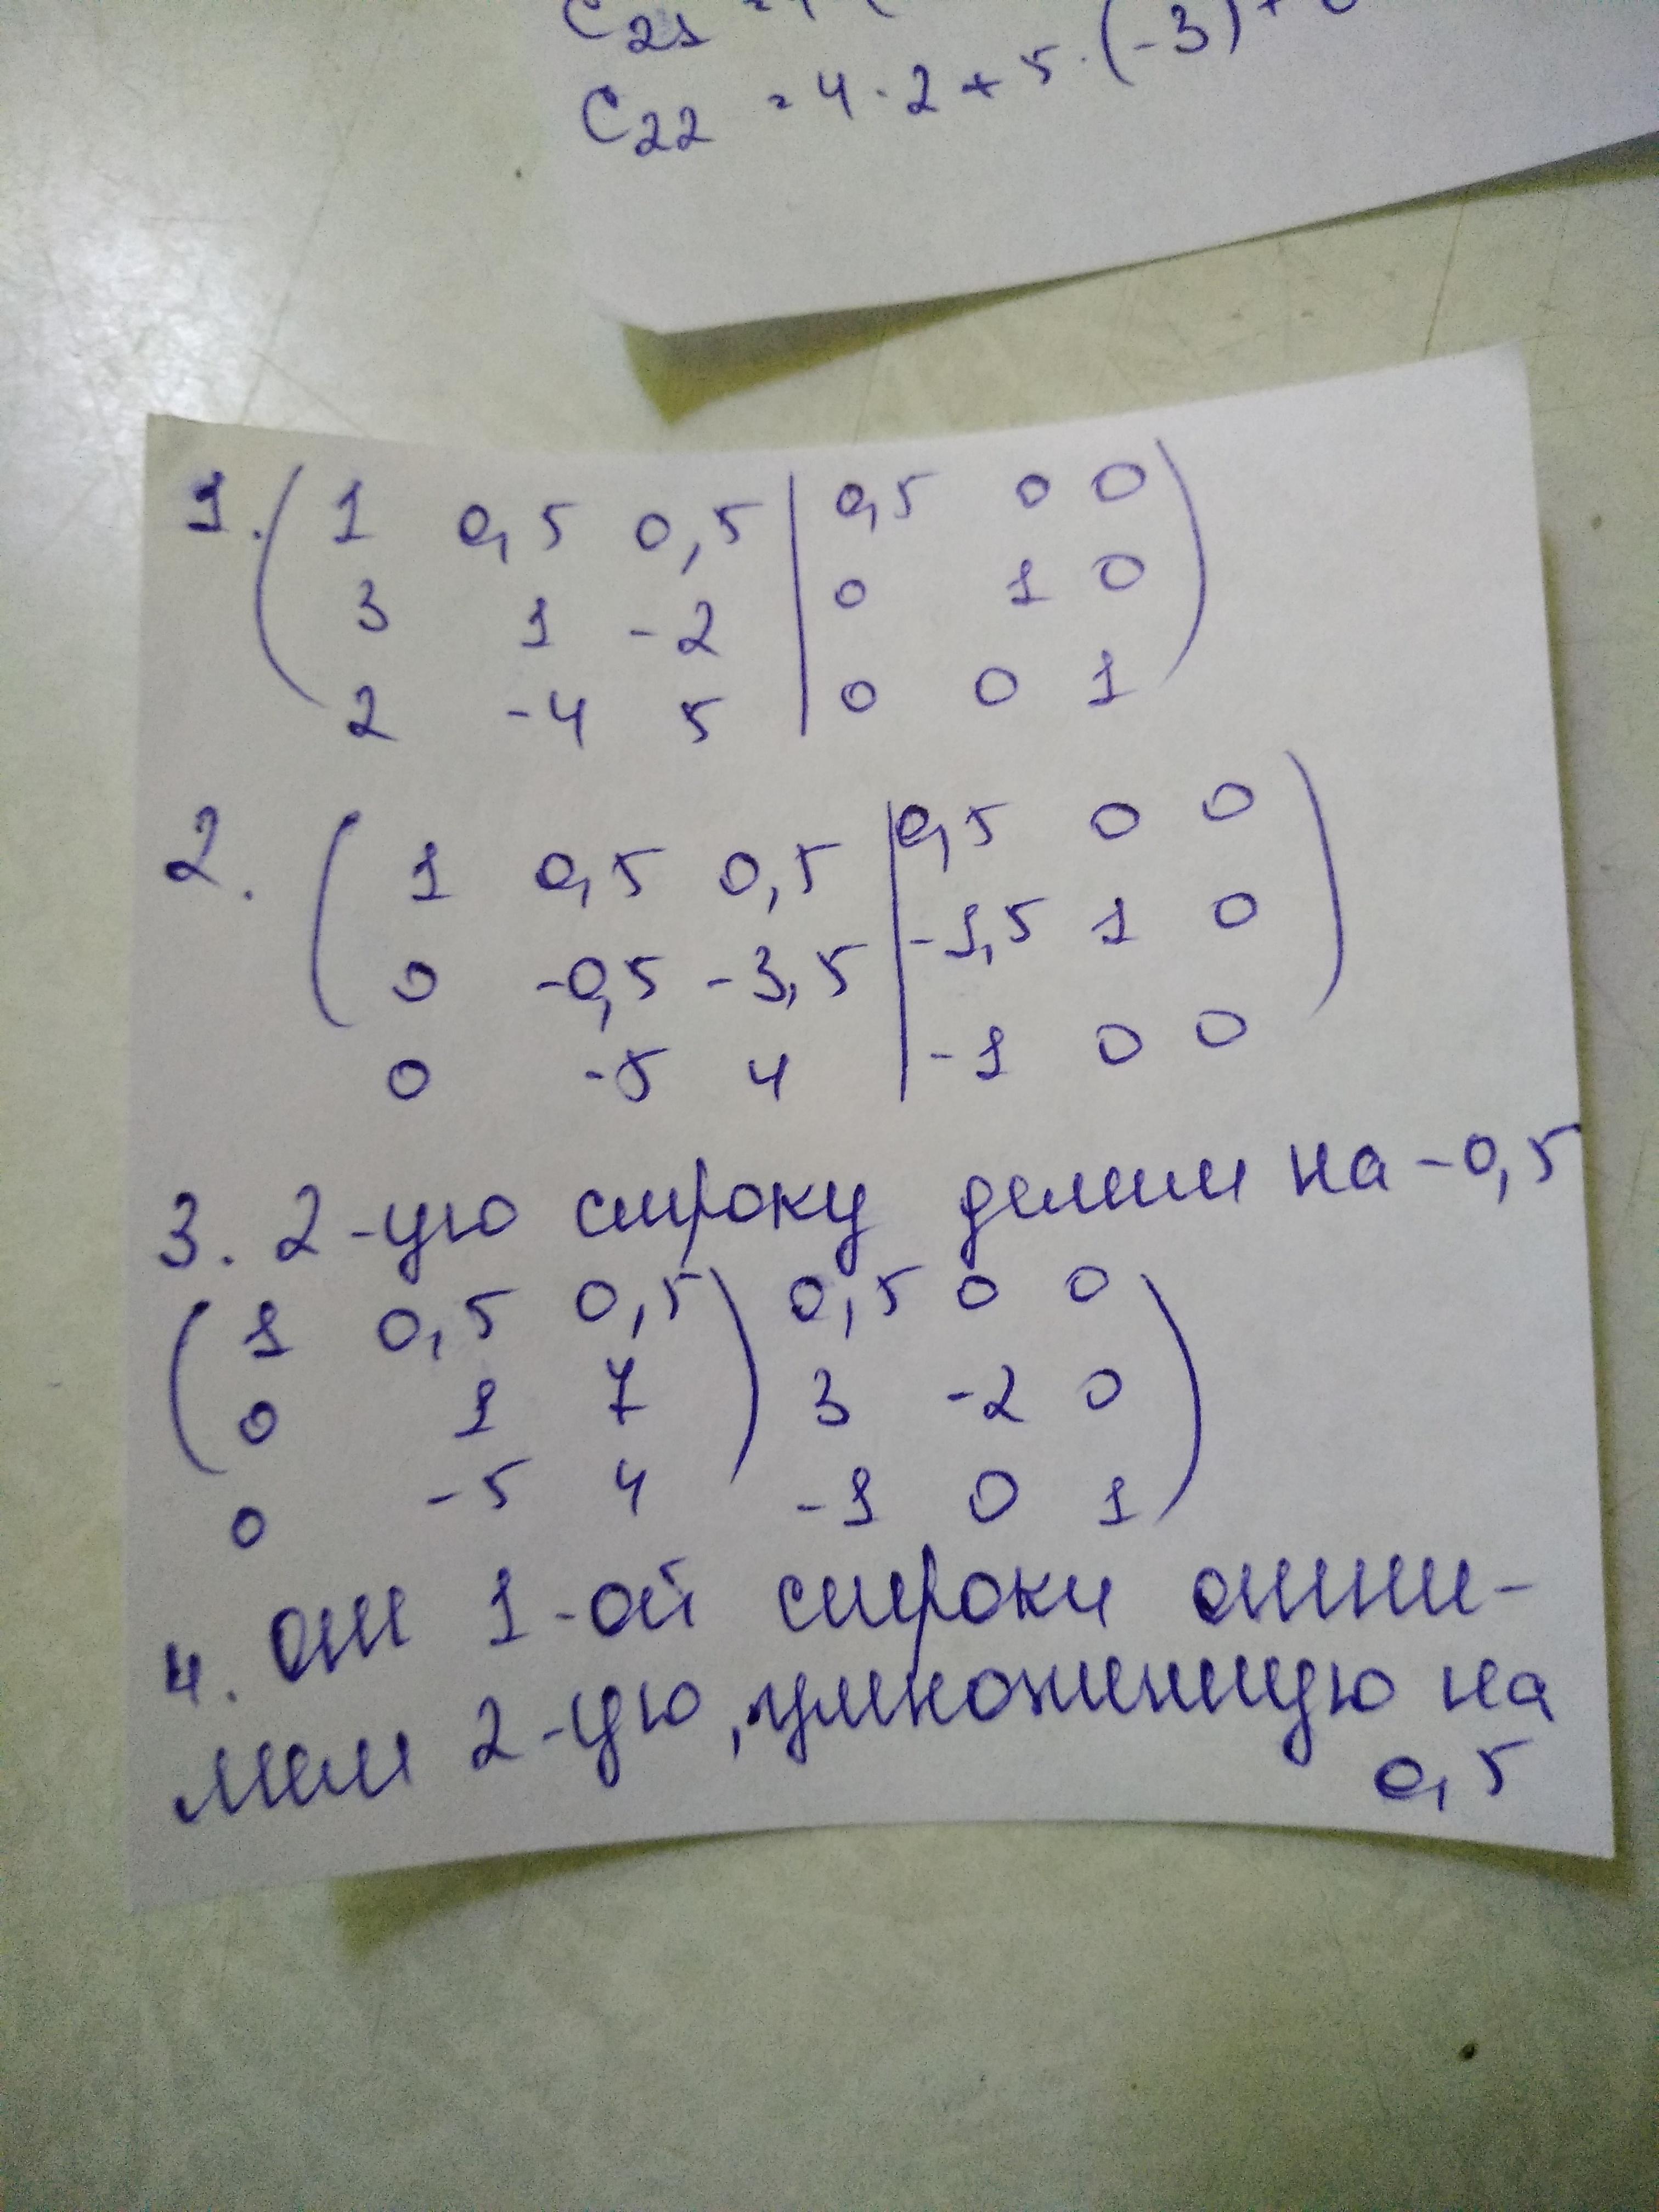 C₂₂ = 4 · 2 + 5 · (-3) +
1. ( 1 0,5 0,5 | 0,5 0 0 )
3 1 -2 | 0 1 0
2 -4 5 | 0 0 1
2. ( 1 0,5 0,5 | 0,5 0 0 )
0 -0,5 -3,5 | -1,5 1 0
0 -5 4 | -1 0 0
3. 2-ую строку делим на -0,5
( 1 0,5 0,5 ) 0,5 0 0 )
0 1 7 3 -2 0
0 -5 4 -1 0 1
4. от 1-ой строки отни-
мем 2-ую, умноженную на
0,5